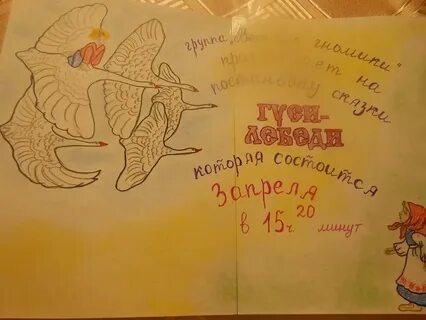 группа „ гномики"
на
постановку сказки
ГУСИ-
ЛЕБЕДИ
которая состоится
3 апреля
в 15ч. 20 минут